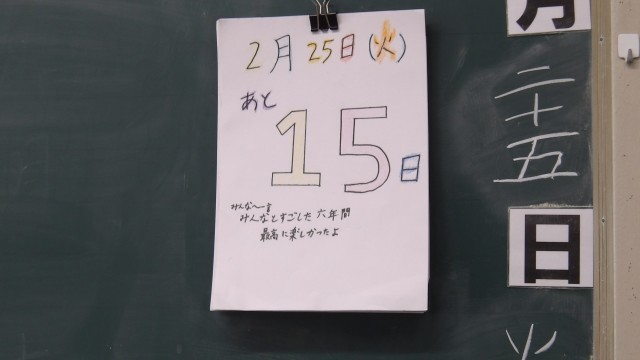 2月25日(火)
あと
15日
みんなへ一言
みんなとすごした六年間
最高に楽しかったよ
月
二十五
日
火